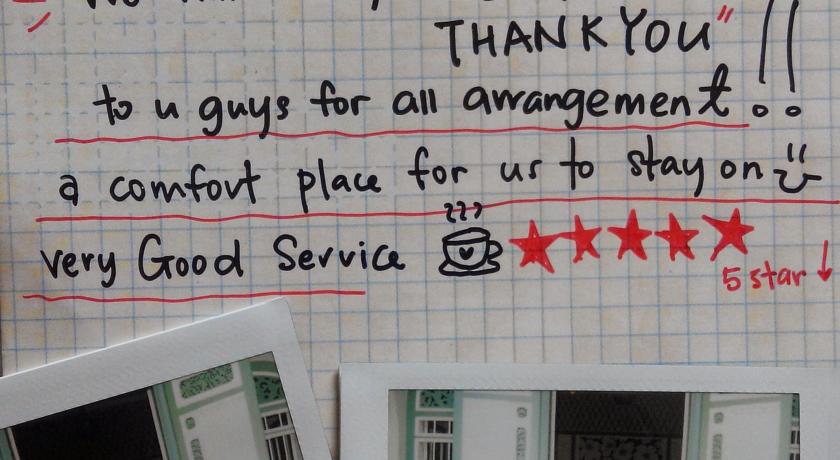 THANK YOU" !!
to u guys for all arrangement
a comfort place for us to stay on
very Good Service
5 star ↓